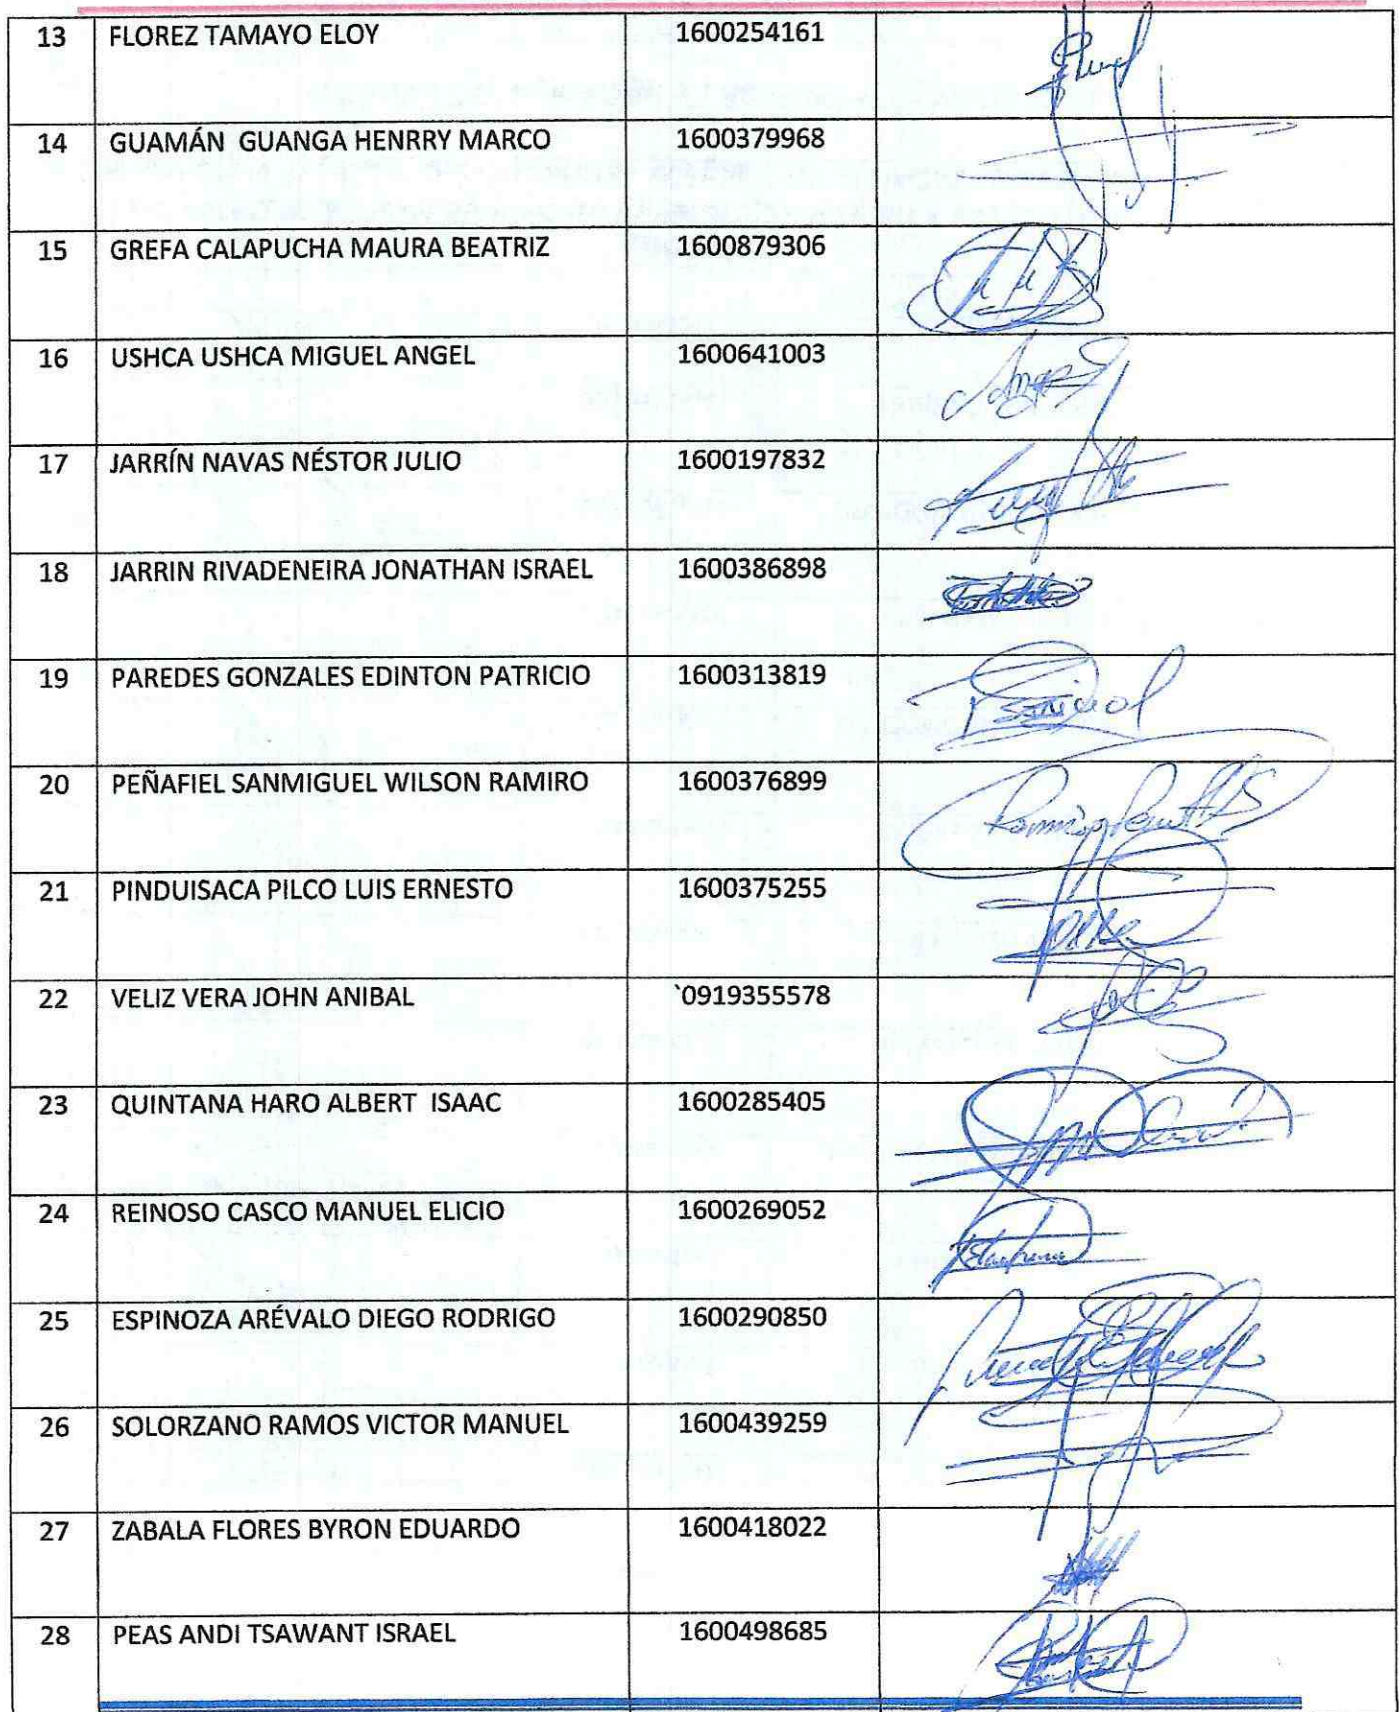 13 FLOREZ TAMAYO ELOY 1600254161
14 GUAMÁN  GUANGA HENRRY MARCO 1600379968
15 GREFA CALAPUCHA MAURA BEATRIZ 1600879306
16 USHCA USHCA MIGUEL ANGEL 1600641003
17 JARRÍN NAVAS NÉSTOR JULIO 1600197832
18 JARRIN RIVADENEIRA JONATHAN ISRAEL 1600386898
19 PAREDES GONZALES EDINTON PATRICIO 1600313819
20 PEÑAFIEL SANMIGUEL WILSON RAMIRO 1600376899
21 PINDUISACA PILCO LUIS ERNESTO 1600375255
22 VELIZ VERA JOHN ANIBAL `0919355578
23 QUINTANA HARO ALBERT  ISAAC 1600285405
24 REINOSO CASCO MANUEL ELICIO 1600269052
25 ESPINOZA ARÉVALO DIEGO RODRIGO 1600290850
26 SOLORZANO RAMOS VICTOR MANUEL 1600439259
27 ZABALA FLORES BYRON EDUARDO 1600418022
28 PEAS ANDI TSAWANT ISRAEL 1600498685